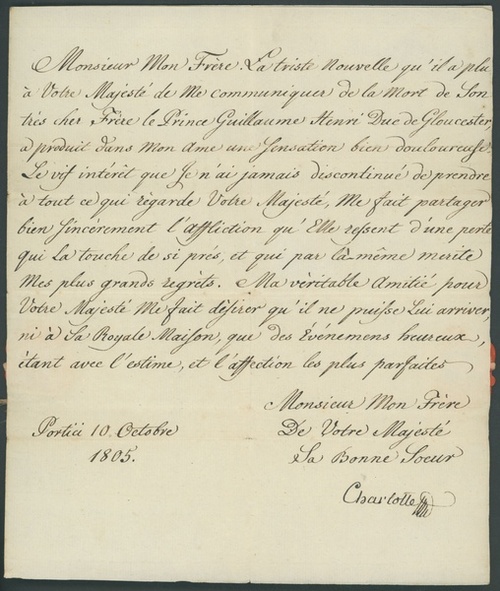 Monsieur Mon Frère. La triste Nouvelle qu'il a plu
à Votre Majesté de Me communiquer de la Mort de Son
très cher Frère le Prince Guillaume Henri Duc de Gloucester,
a produit dans Mon Ame une Sensation bien douloureuse.
Le vif intérêt que Je n'ai jamais discontinué de prendre
à tout ce qui regarde Votre Majesté, Me fait partager
bien Sincèrement l'affliction qu'Elle ressent d'une perte
qui La touche de si près, et qui par là-même merite
Mes plus grands regrets. Ma vèritable Amitié pour
Votre Majesté Me fait désirer qu'il ne puisse Lui arriver,
ni à Sa Royale Maison, que des Evénemens heureux,
étant avec l'estime, et l'affection les plus parfaites
Monsieur Mon Frère
De Votre Majesté
Sa Bonne Soeur
Charlotte
Portici 10 Octobre
1805.